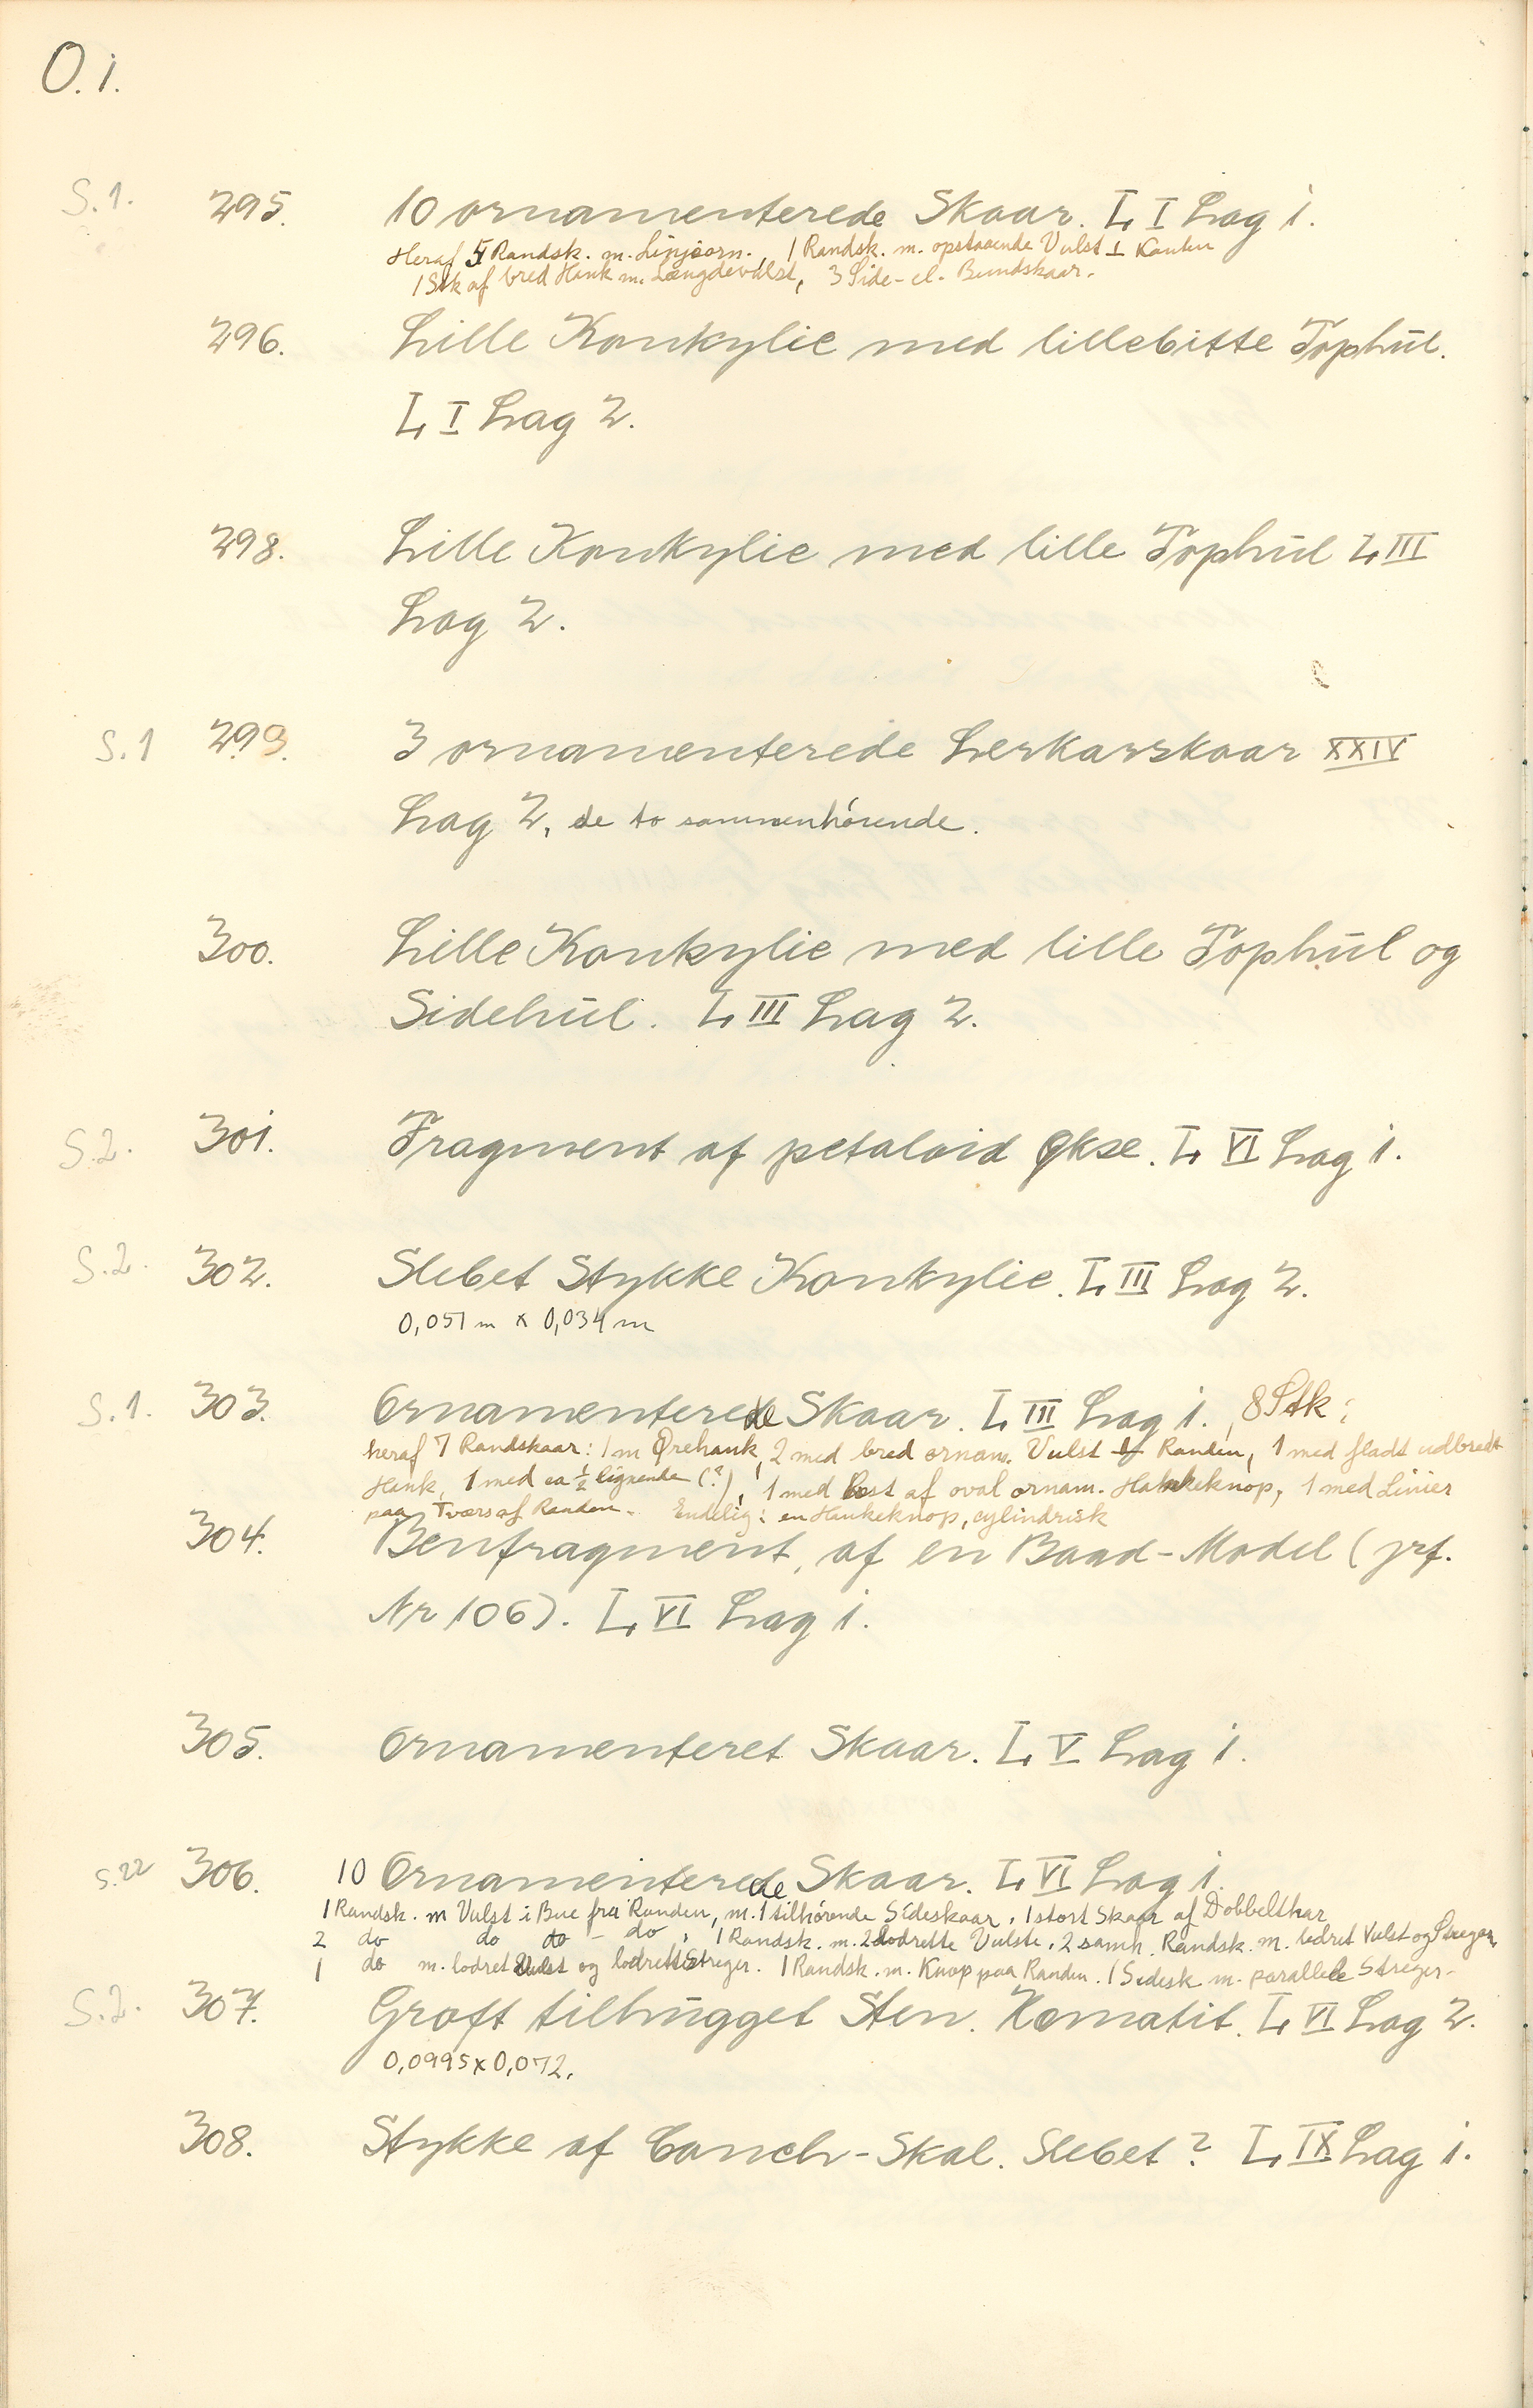 O. 1.
S. 1. 295. 10 ornamenterede Skaar. L, I Lag 1.
Heraf 5 Randsk. m. Linjeorn., 1 Randsk. m. opstaaende Vulst ⊥ Kanten
1 Stk af bred Hank m. Længdevulst, 3 Side- el. Bundskaar.
296. Lille Konkylie med lillebitte Tophul.
L, I Lag 2.
298. Lille Konkylie med lille Tophul L, III
Lag 2.
S. 1 299. 3 ornamenterede Lerkarskaar XXIV
Lag 2, de to sammenhörende.
300. Lille Konkylie med lille Tophul og
Sidehul. L, III Lag 2.
S. 2. 301. Fragment af petaloid Økse. L, VI Lag 1.
S. 2. 302. Slebet Stykke Konkylie. L, III Lag 2.
0,051 m x 0,034 m
S. 1. 303. Ornamenterede Skaar. L, III Lag 1., 8 Stk:
heraf 7 Randskaar: 1 m Ørehank, 2 med bred ornam. Vulst Randen, 1 med fladt udbredt
Hank, 1 med ca ½ lignende (?), 1 med Rest af oval ornam. Hankeknop, 1 med Linier
paa Tværs af Randen. Endelig: en Hankeknop, cylindrisk
304. Benfragment, af en Baad-Model (jrf.
Nr 106). L, VI Lag 1.
305. Ornamenteret Skaar. L, V Lag 1.
S. 22 306. 10 Ornamenterede Skaar. L, VI Lag 1.
1 Randsk. m Vulst i Bue fra Randen, m. 1 tilhörende Sideskaar, 1 stort Skaar af Dobbeltkar
2 do do do - do, 1 Randsk. m. 2 lodrette Vulste, 2 samh. Randsk. m. lodret Vulst og Streger,
1 do m. lodret Vulst og lodrette Streger. 1 Randsk. m. Knop paa Randen. 1 Sidesk m. parallele Streger.
S. 2. 307. Groft tilhugget Sten. Komatit. L, VI Lag 2.
0,0995 x 0,072.
308. Stykke af Conch-Skal. Slebet? L, IX Lag 1.